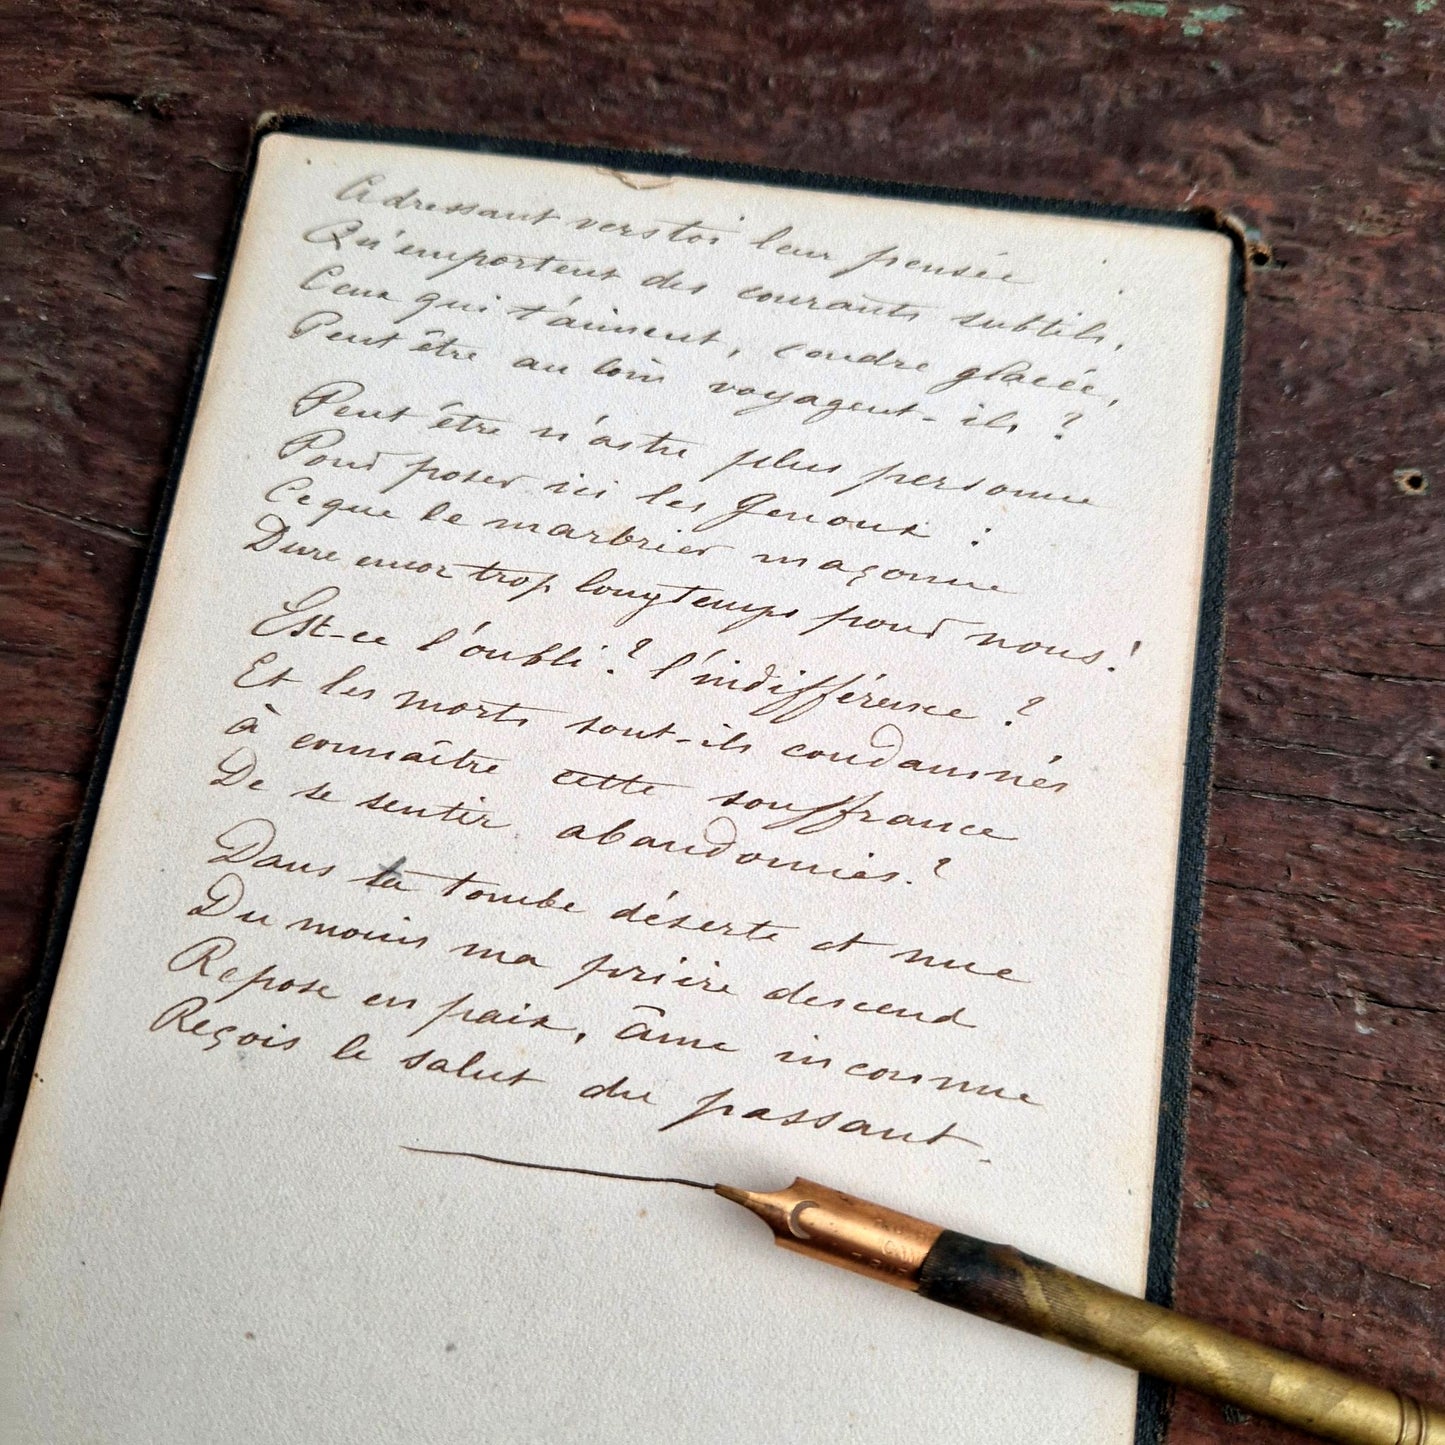 Adressant vers toi leur pensée
Qu'emportent des courants subtils,
Ceux qui t'aiment, cendre glacée,
Peut être au loin voyagent-ils ?
Peut être n'astu plus personne
Pour poser ici les genoux :
Ce que le marbrier maçonne
Dure encor trop longtemps pour nous !
Est-ce l'oubli ? l'indifférence ?
Et les morts sont-ils condamnés
à connaître cette souffrance
De se sentir abandonnés. ?
Dans ta tombe déserte et nue
Du moins ma prière descend
Repose en paix, âme inconnue
Reçois le salut du passant.